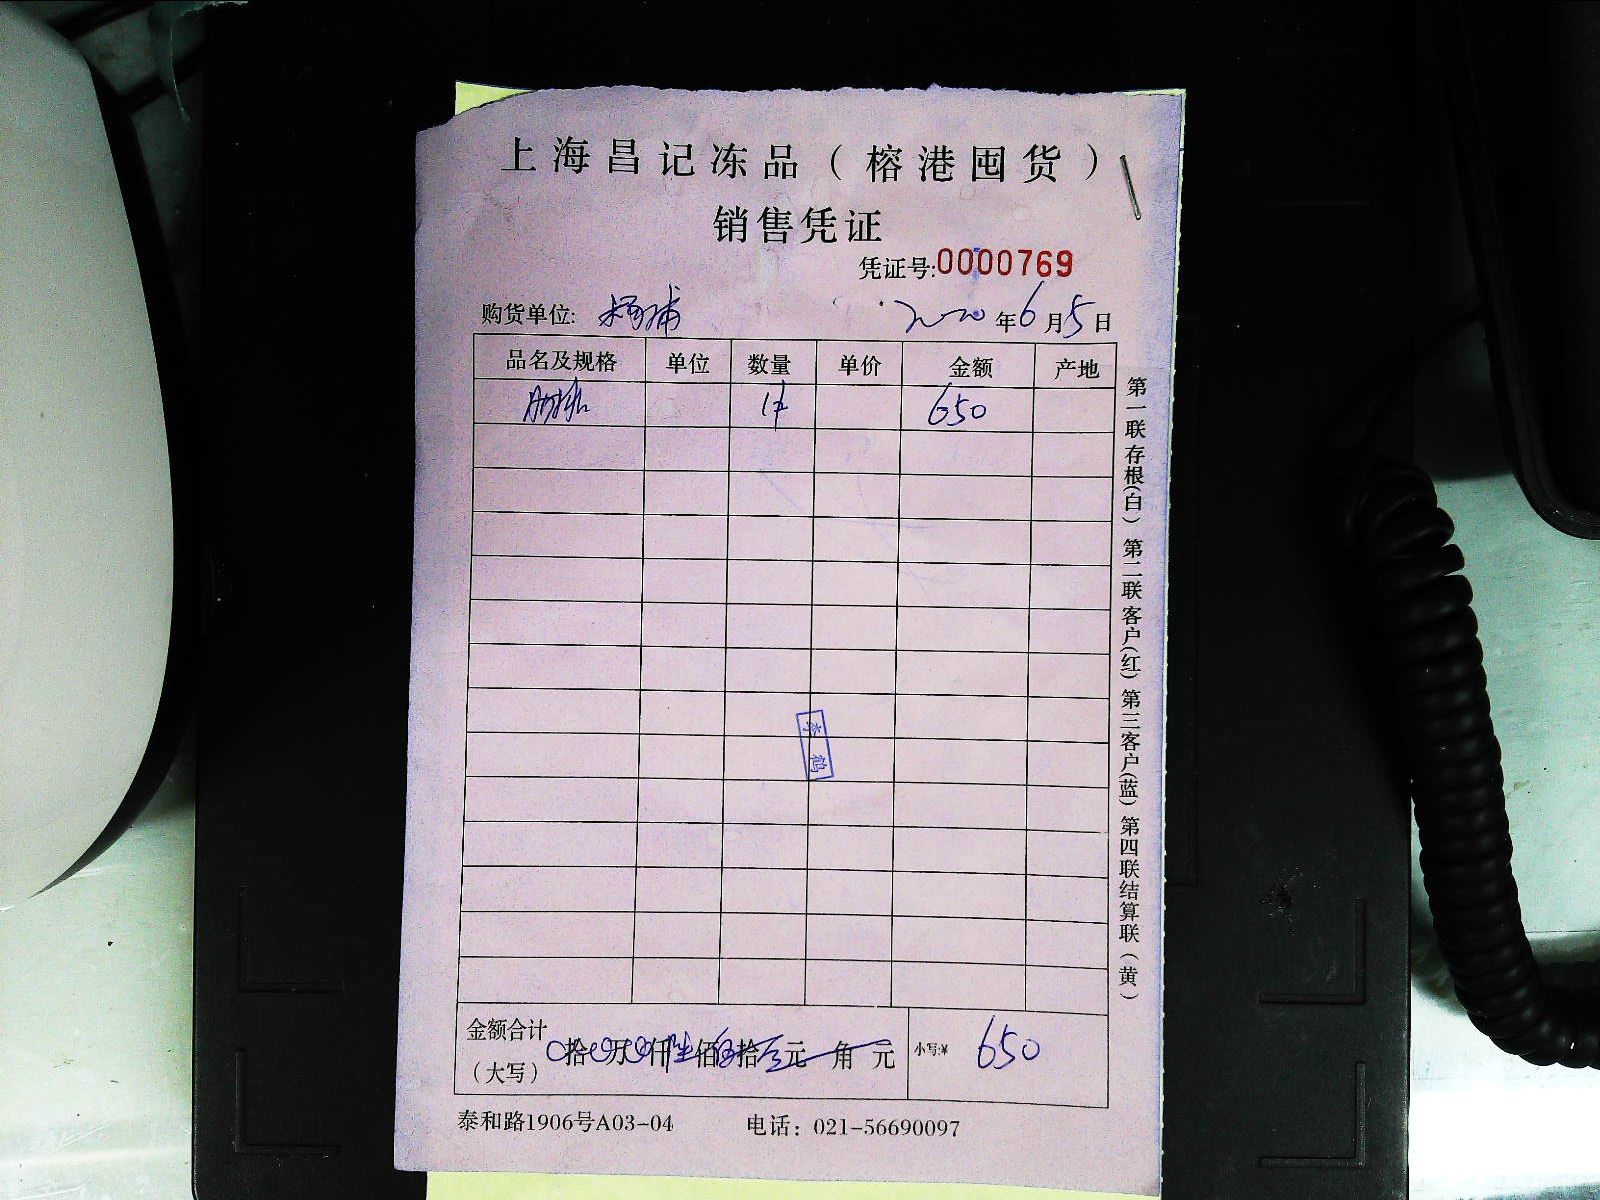 上海昌记冻品（榕港囤货）
销售凭证
凭证号:0000769
购货单位:
2020年6月5日
品名及规格 单位 数量 单价 金额 产地
1件 650
李鹤
金额合计
（大写）
拾 万 仟陆佰伍拾 元 角 元
小写:¥ 650
泰和路1906号A03-04 电话：021-56690097
第一联存根（白）第二联客户（红）第三客户（蓝）第四联结算联（黄）